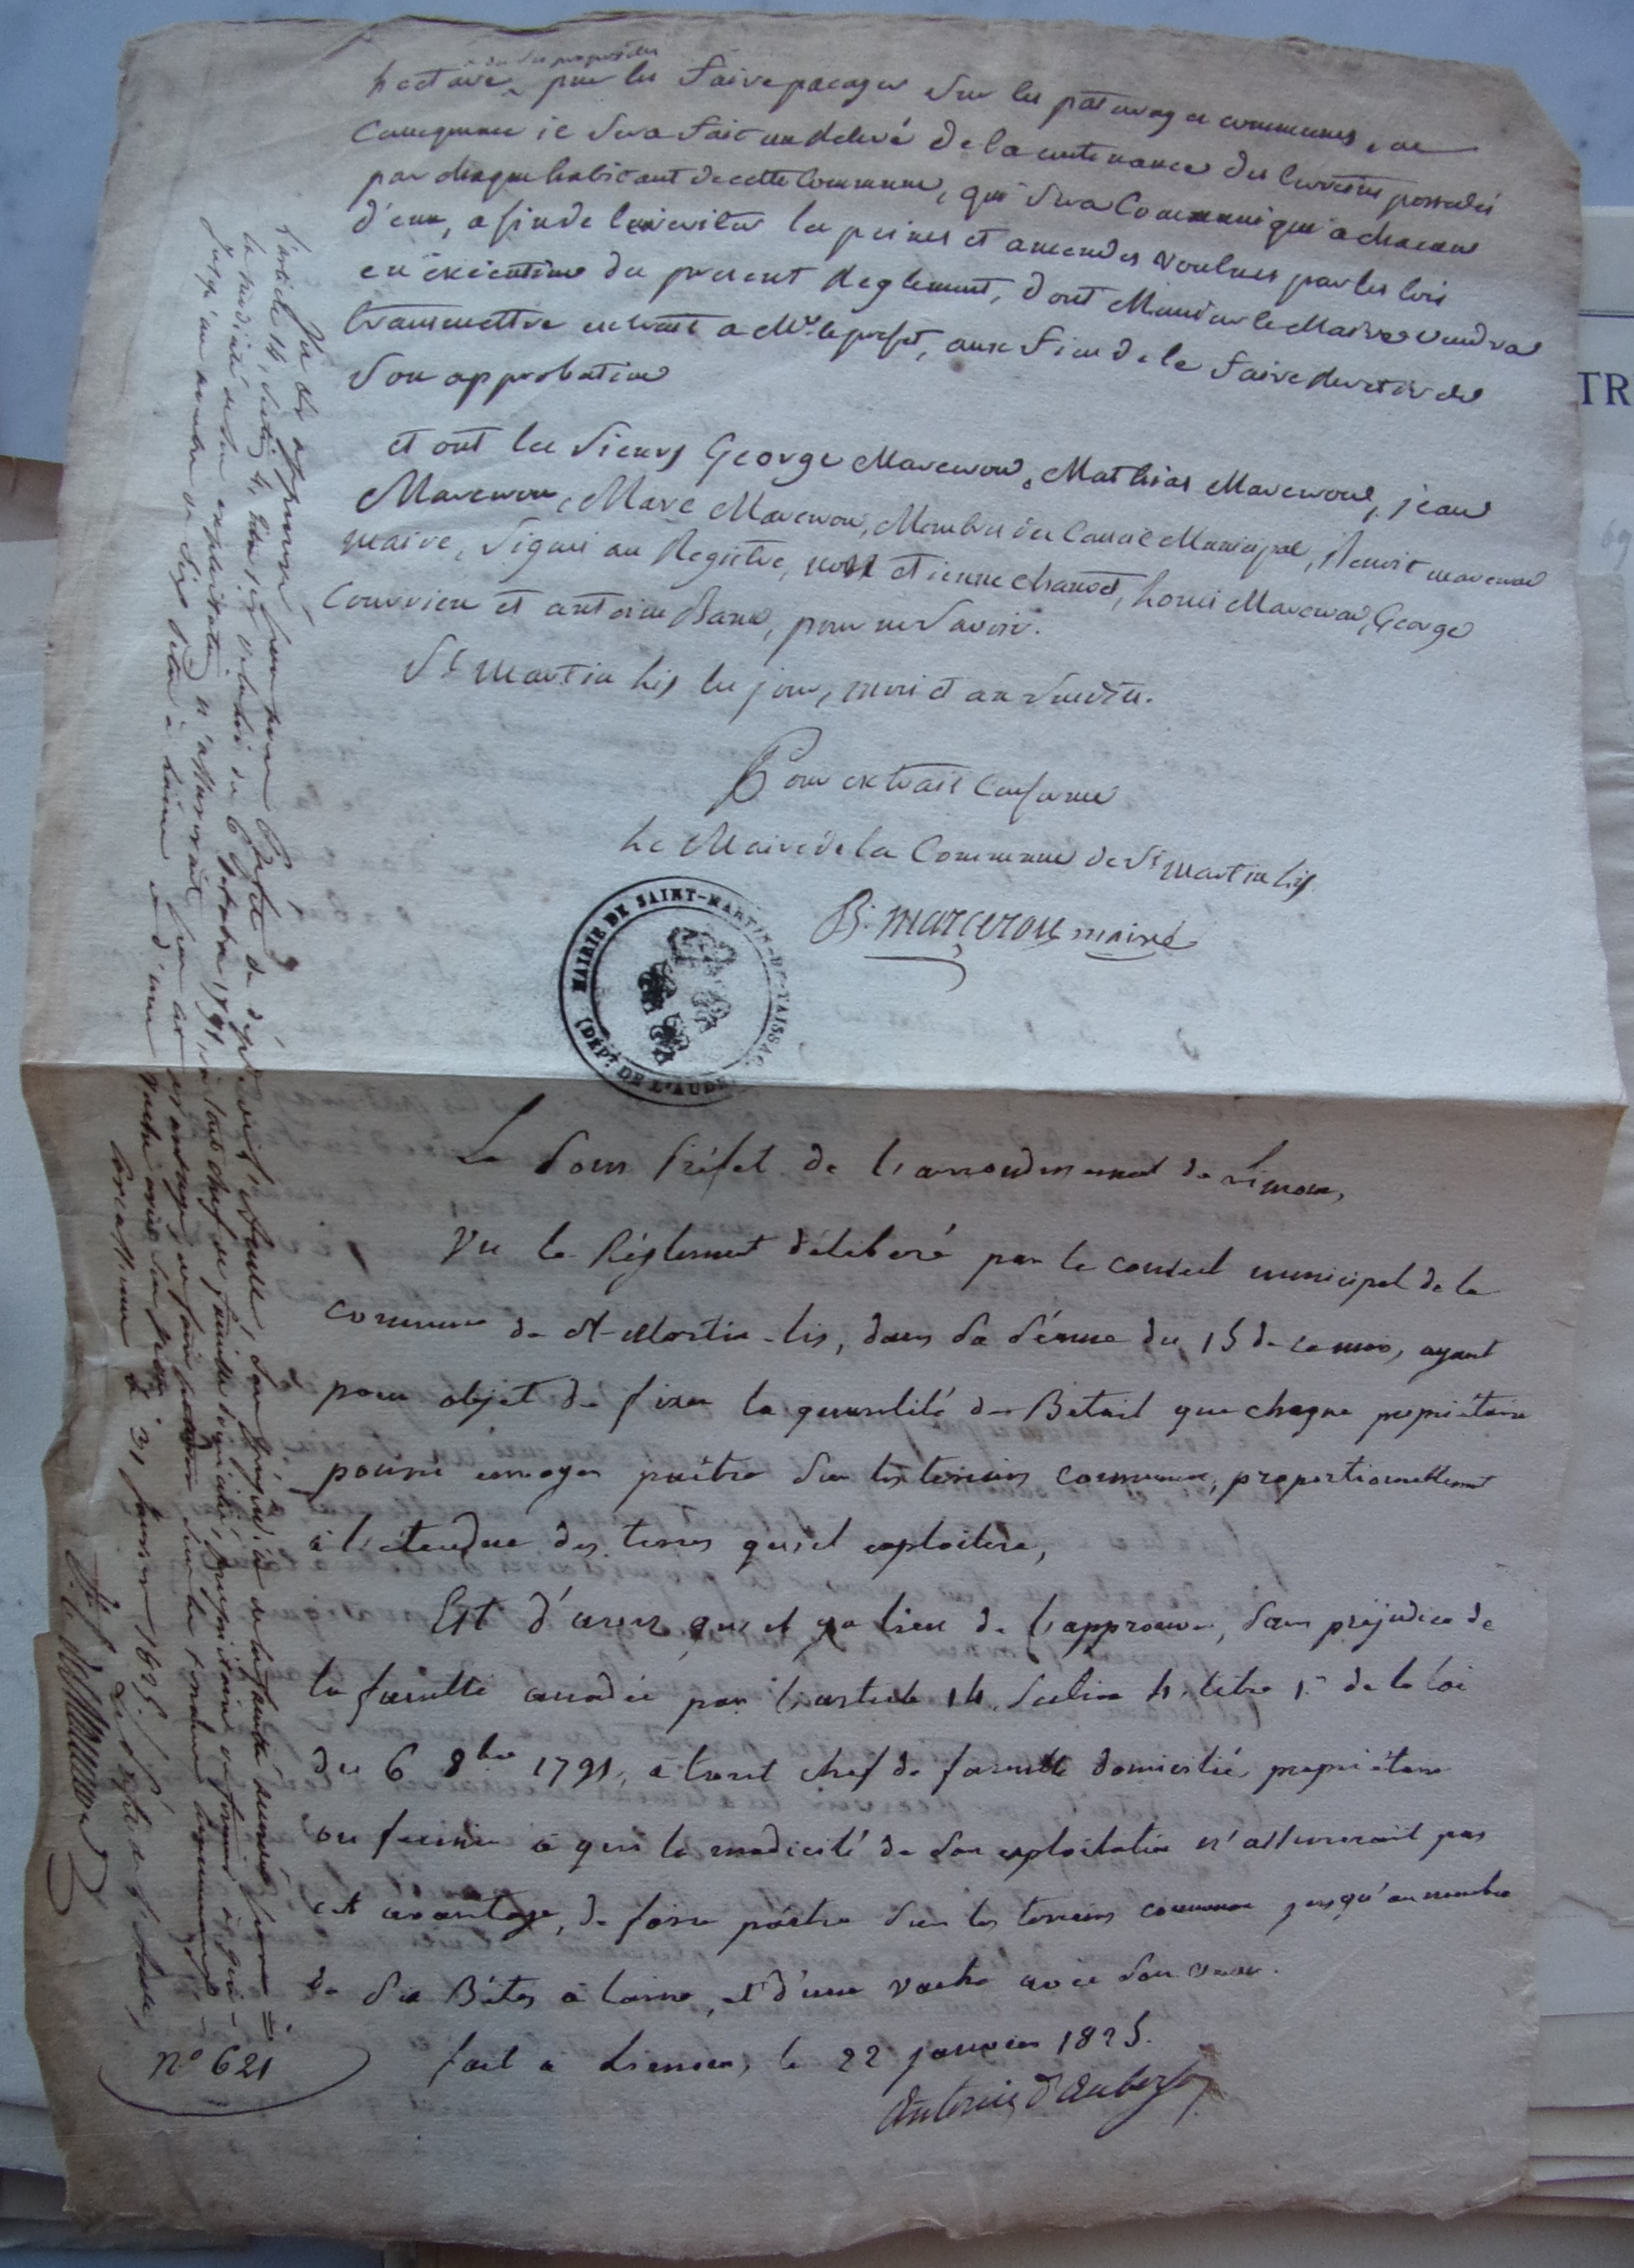 hectare, pour les faire pacager sur les paturages communes, en
Consequence il sera fait un relevé de la contenance des terreins possedés
par chaque habitant de cette Commune, qui sera Communiqué a chacun
d'eux, afin de leur eviter les peines et amendes voulues par les lois
en execution du present Reglement, dont Monsieur le Maire voudra
transmettre extrait a Mr. le prefet, aux fins de le faire revetir de
son approbation
et ont les sieurs George Marcerou, Mathias Marcerou, jean
Marcerou, Marc Marcerou, Membres du Conseil Municipal, Benoit marcerou
maire, signés au Registre, non etienne chauvet, Louis Marcerou, George
Courrieu et antoine Banc, pour ne savoir.
St martin lis les jour, mois et an susdits.
Pour extrait conforme
Le Maire de la Commune de St martin lis
B. marcerou maire
MAIRIE DE SAINT-MARTIN-DE-TAISSAC
(DEPT. DE L'AUDE)
Le Sous Préfet de l'arrondissement de Limoux,
Vu le Réglement délibéré par le conseil municipal de la
commune de St-Martin-lis, dans sa séance du 15 de ce mois, ayant
pour objet de fixer la quantité de Bétail que chaque propriétaire
pourra envoyer paitre sur les terreins communaux, proportionnellement
à l'étendue des terres qu'il exploitera,
Est d'avis qu'il y a lieu de l'approuver, sans préjudice de
la faculté accordée par l'article 14, section 4, titre 1er de la loi
du 6 8bre 1791, à tout chef de famille domicilié, propriétaire
ou fermier à qui la modicité de son exploitation n'assurerait pas
cet avantage, de faire paître sur les terreins communaux jusqu'au nombre
de six Bêtes à laine, et d'une vache avec son veau.
fait à Limoux, le 22 janvier 1825.
Antonin d'Auberjon
Vu et approuvé par nous Préfet du dépt de l'Aude, sans préjudice de la faculté donnée par
l'article 14, section 4, titre 1er de la loi du 6 octobre 1791, à tout chef de famille domicilié, propriétaire ou fermier à qui
la modicité de son exploitation n'assurerait pas cet avantage, de faire paître sur les terreins communaux
jusqu'au nombre de six bêtes à laine et d'une vache avec son veau
Carcassonne le 31 janvier 1825.
n° 621